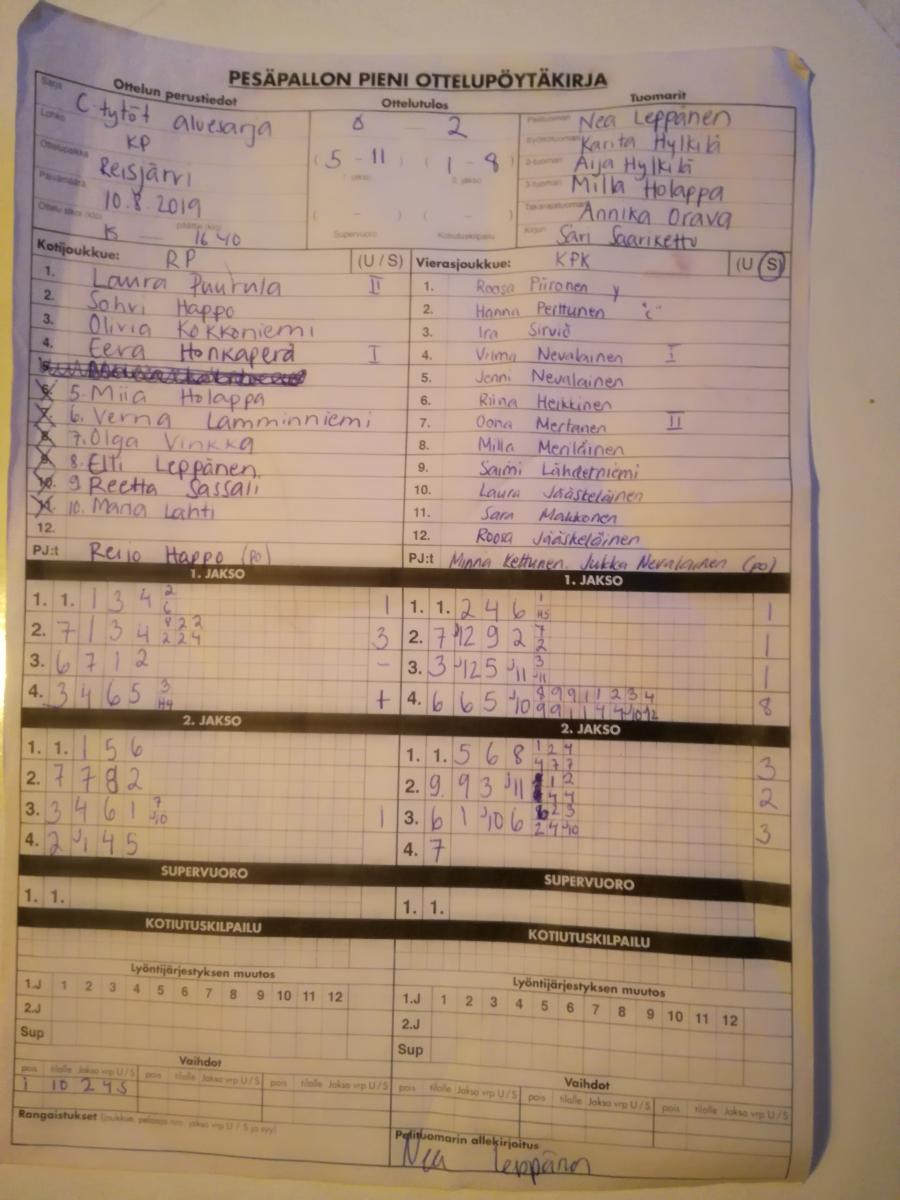 PESÄPALLON PIENI OTTELUPÖYTÄKIRJA
Sarja Ottelun perustiedot Ottelutulos Tuomarit
C-tytöt aluesarja 0 - 2
Lohko KP
(5 - 11) (1 - 8)
1. jakso 2. jakso
Ottelupaikka Reisjärvi
Päivämäärä 10.8.2019
Ottelu alkoi (klo) päättyi (klo)
15 — 16 40
( - ) ( - )
Supervuoro Kotiutuskilpailu
Pelituomari Nea Leppänen
Syöttötuomari Karita Hylkilä
2-tuomari Aija Hylkilä
3-tuomari Milla Holappa
Takarajatuomari Annika Orava
Kirjuri Sari Saarikettu
Kotijoukkue: RP (U / S)
1. Laura Puurula II
2. Sohvi Happo
3. Olivia Kokkoniemi
4. Eeva Honkaperä I
5. Miia Holappa
6. Verna Lamminniemi
7. Olga Vinkka
8. Elli Leppänen
9 Reetta Sassali
10. Maria Lahti
12.
PJ:t Reijo Happo (po)
Vierasjoukkue: KPK (U / S)
1. Roosa Piironen
2. Hanna Perttunen
3. Ira Sirviö
4. Vilma Nevalainen I
5. Jenni Nevalainen
6. Riina Heikkinen
7. Oona Mertanen II
8. Milla Meriläinen
9. Saimi Lähderniemi
10. Laura Jääskeläinen
11. Sara Makkonen
12. Roosa Jääskeläinen
PJ:t Minna Kettunen, Jukka Nevalainen (po)
1. JAKSO
1. 1. 1 3 4 2 6 1
2. 7 1 3 4 8 2 2 2 2 4 3
3. 6 7 1 2 -
4. 3 4 6 5 3 H4 +
2. JAKSO
1. 1. 1 5 6
2. 7 7 8 2
3. 3 4 6 1 7 J10 1
4. 2 J1 4 5
SUPERVUORO
1. 1.
KOTIUTUSKILPAILU
Lyöntijärjestyksen muutos
1.J 1 2 3 4 5 6 7 8 9 10 11 12
2.J
Sup
Vaihdot
pois tilalle Jakso vrp U / S pois tilalle Jakso vrp U / S pois tilalle Jakso vrp U / S
1 10 2 4 S
Rangaistukset (joukkue, pelaaja nro, jakso vrp U / S ja syy)
1. JAKSO
1. 1. 2 4 6 1 H5 1
2. 7 J12 9 2 7 2 1
3. 3 J12 5 J11 3 J11 1
4. 6 6 5 J10 8 9 9 1 1 2 3 4 9 9 1 1 4 4 J10 12 8
2. JAKSO
1. 1. 5 6 8 1 2 4 4 7 7 3
2. 9 9 3 J11 1 2 4 4 2
3. 6 1 J10 6 2 3 2 4 J10 3
4. 7
SUPERVUORO
1. 1.
KOTIUTUSKILPAILU
Lyöntijärjestyksen muutos
1.J 1 2 3 4 5 6 7 8 9 10 11 12
2.J
Sup
Vaihdot
pois tilalle Jakso vrp U / S pois tilalle Jakso vrp U / S pois tilalle Jakso vrp U / S
Pelituomarin allekirjoitus
Nea Leppänen